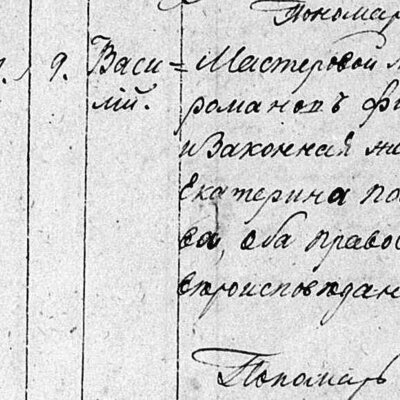 Пономар
9. Васи= Мастеровой
лій. романовъ
и Законная
Екатерина
ва, оба правос
вѣроисповѣдан
Пономарь